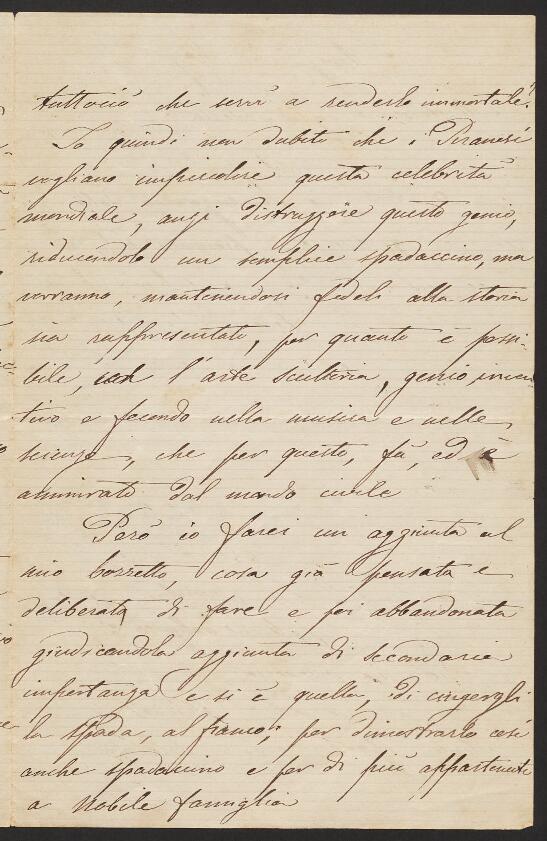 tuttociò che servì a renderlo immortale?
Io quindi non dubito che i Piranesi
vogliano impiccolire questa celebrità
mondiale, anzi distruggere questo genio,
riducendolo un semplice spadaccino, ma
vorranno, mantenendosi fedeli alla storia
sia rappresentato, per quanto è possi-
bile, con l'arte scultoria, genio inven
tivo e fecondo nella musica e nelle
scienze, che per questo, fù, ed è
ammirato dal mondo civile
Però io farei un aggiunta al
mio bozzetto, cosa già pensata e
deliberata di fare e poi abbandonata
giudicandola aggiunta di secondaria
importanza e si è quella, di cingergli
la spada, al fianco, per dimostrarlo così
anche spadaccino e per di più appartenente
a nobile famiglia